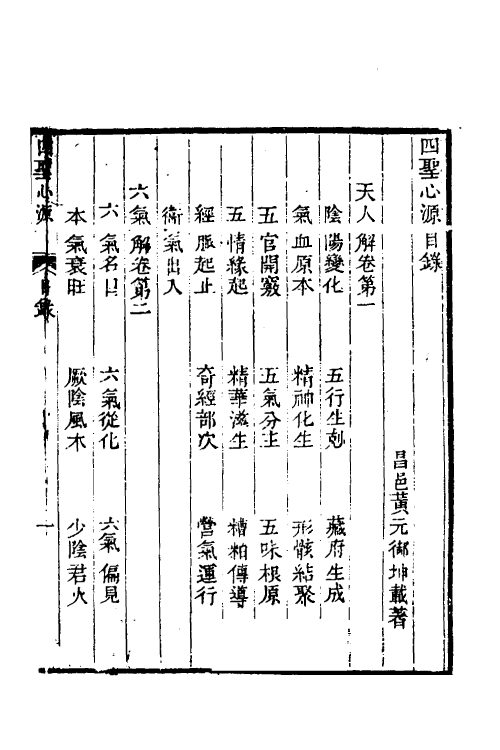 四聖心源目錄
昌邑黃元御坤載著
天人解卷第一
陰陽變化 五行生剋 藏府生成
氣血原本 精神化生 形骸結聚
五官開竅 五氣分主 五味根原
五情緣起 精華滋生 糟粕傳導
經脈起止 奇經部次 營氣運行
衞氣出入
六氣解卷第二
六氣名目 六氣從化 六氣偏見
本氣衰旺 厥陰風木 少陰君火
四聖心源 目錄 一